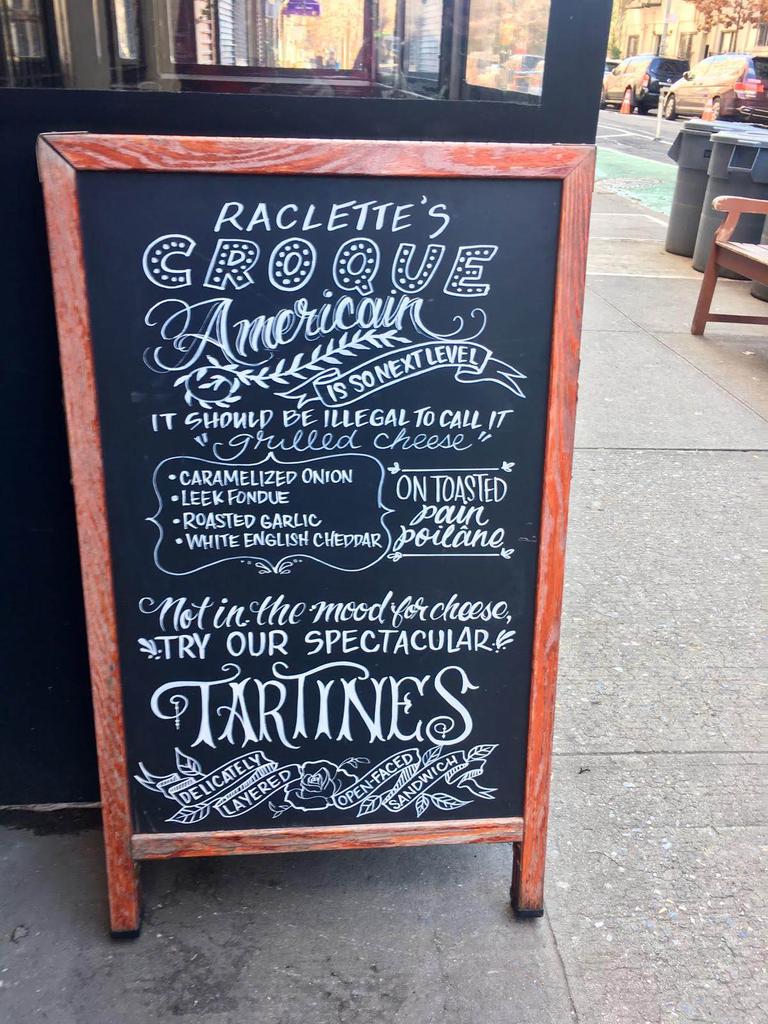 RACLETTE'S
CROQUE
Americain
IS SO NEXT LEVEL
IT SHOULD BE ILLEGAL TO CALL IT
"grilled cheese"
• CARAMELIZED ONION
• LEEK FONDUE
• ROASTED GARLIC
• WHITE ENGLISH CHEDDAR
ON TOASTED
pain
poilâne
Not in the mood for cheese,
TRY OUR SPECTACULAR
TARTINES
DELICATELY
LAYERED
OPEN-FACED
SANDWICH